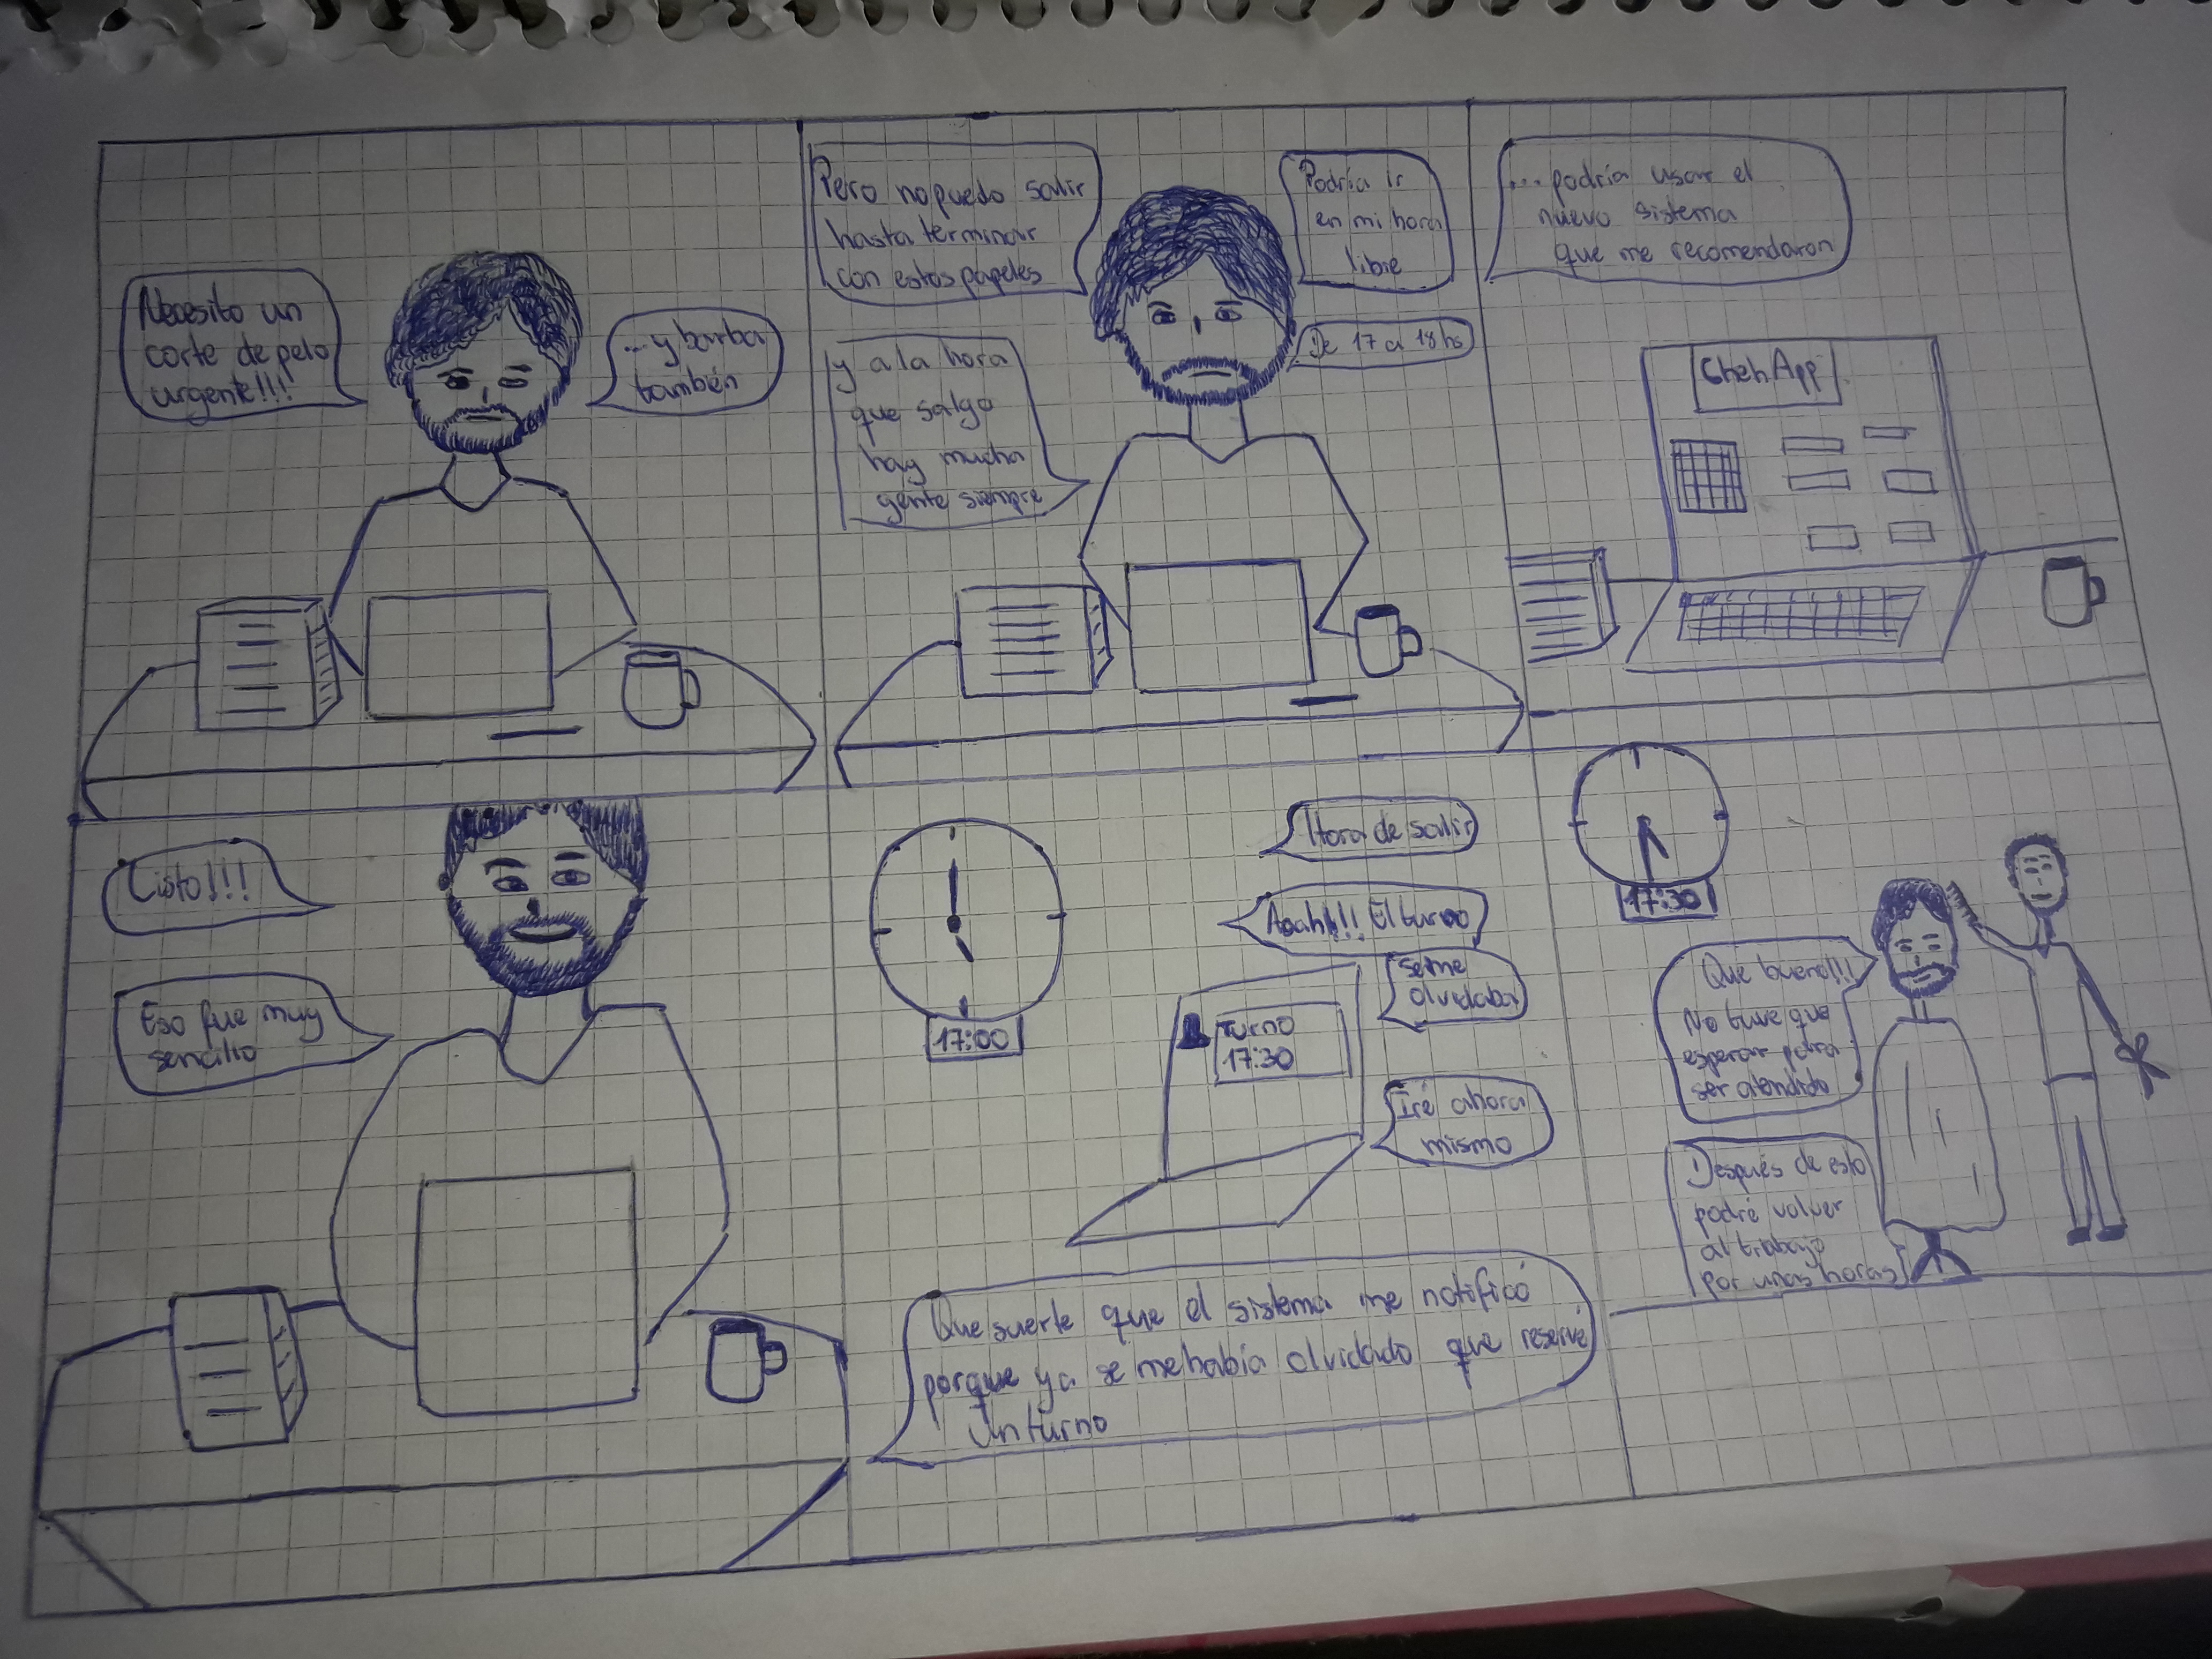 Necesito un
corte de pelo
urgente!!!
...y barba
también
Pero no puedo salir
hasta terminar
con estos papeles
y a la hora
que salgo
hay mucha
gente siempre
Podría ir
en mi hora
libre
De 17 a 18 hs
... podría usar el
nuevo sistema
que me recomendaron
App
Listo!!!
Eso fue muy
sencillo
17:00
Hora de salir
Aaah!!! El turno
se me
olvidaba
Turno
17:30
Iré ahora
mismo
Que suerte que el sistema me notificó
porque ya se me había olvidado que reservé
un turno
17:30
Que bueno!!!
No tuve que
esperar para
ser atendido
Después de esto
podré volver
al trabajo
por unas horas